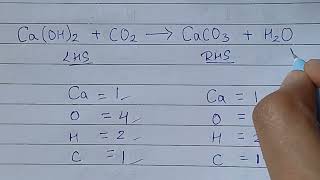 Ca(OH)₂ + CO₂ → CaCO₃ + H₂O
LHS RHS
Ca = 1 Ca = 1
O = 4 O =
H = 2 H = 2
C = 1 C = 1